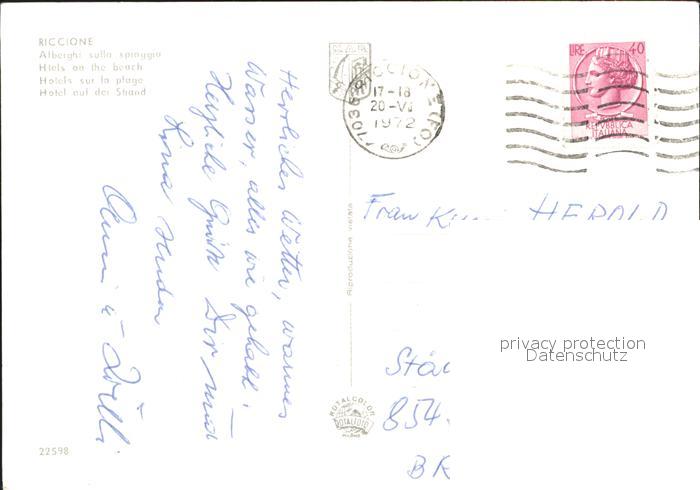 RICCIONE
Alberghi sulla spiaggia
Htels on the beach
Hotels sur la plage
Hotel auf dei Strand
Herrliches Wetter, warmes
Wasser, alles wie gehabt.
Herzliche Grüße Dir und
Anni u. Willi
22598
Riproduzione vietata
ROTALCOLOR
ROTALFOTO
MILANO
RICCIONE (FO)
17-18
20-VI
1972
LIRE 40
REPVBBLICA
ITALIANA
Frau HERALD
854
BK
privacy protection
Datenschutz